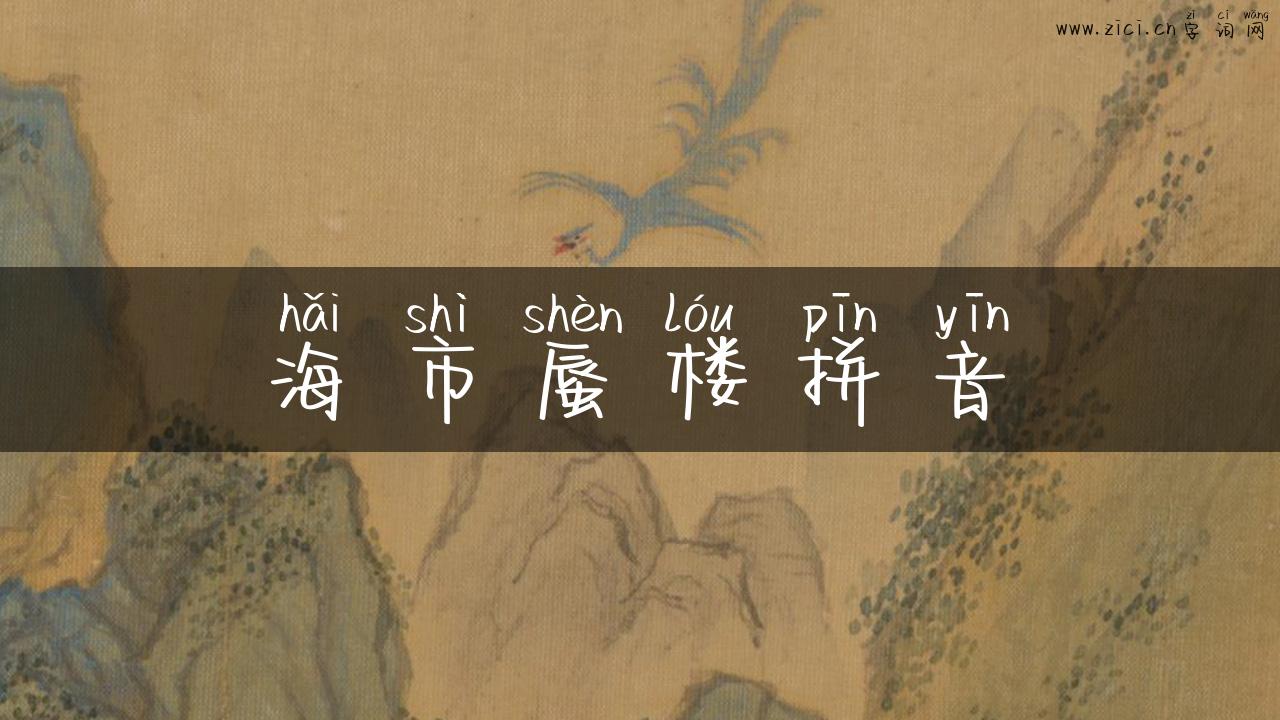 zì cí wǎng
www.zici.cn字词网
hǎi shì shèn lóu pīn yīn
海市蜃楼拼音